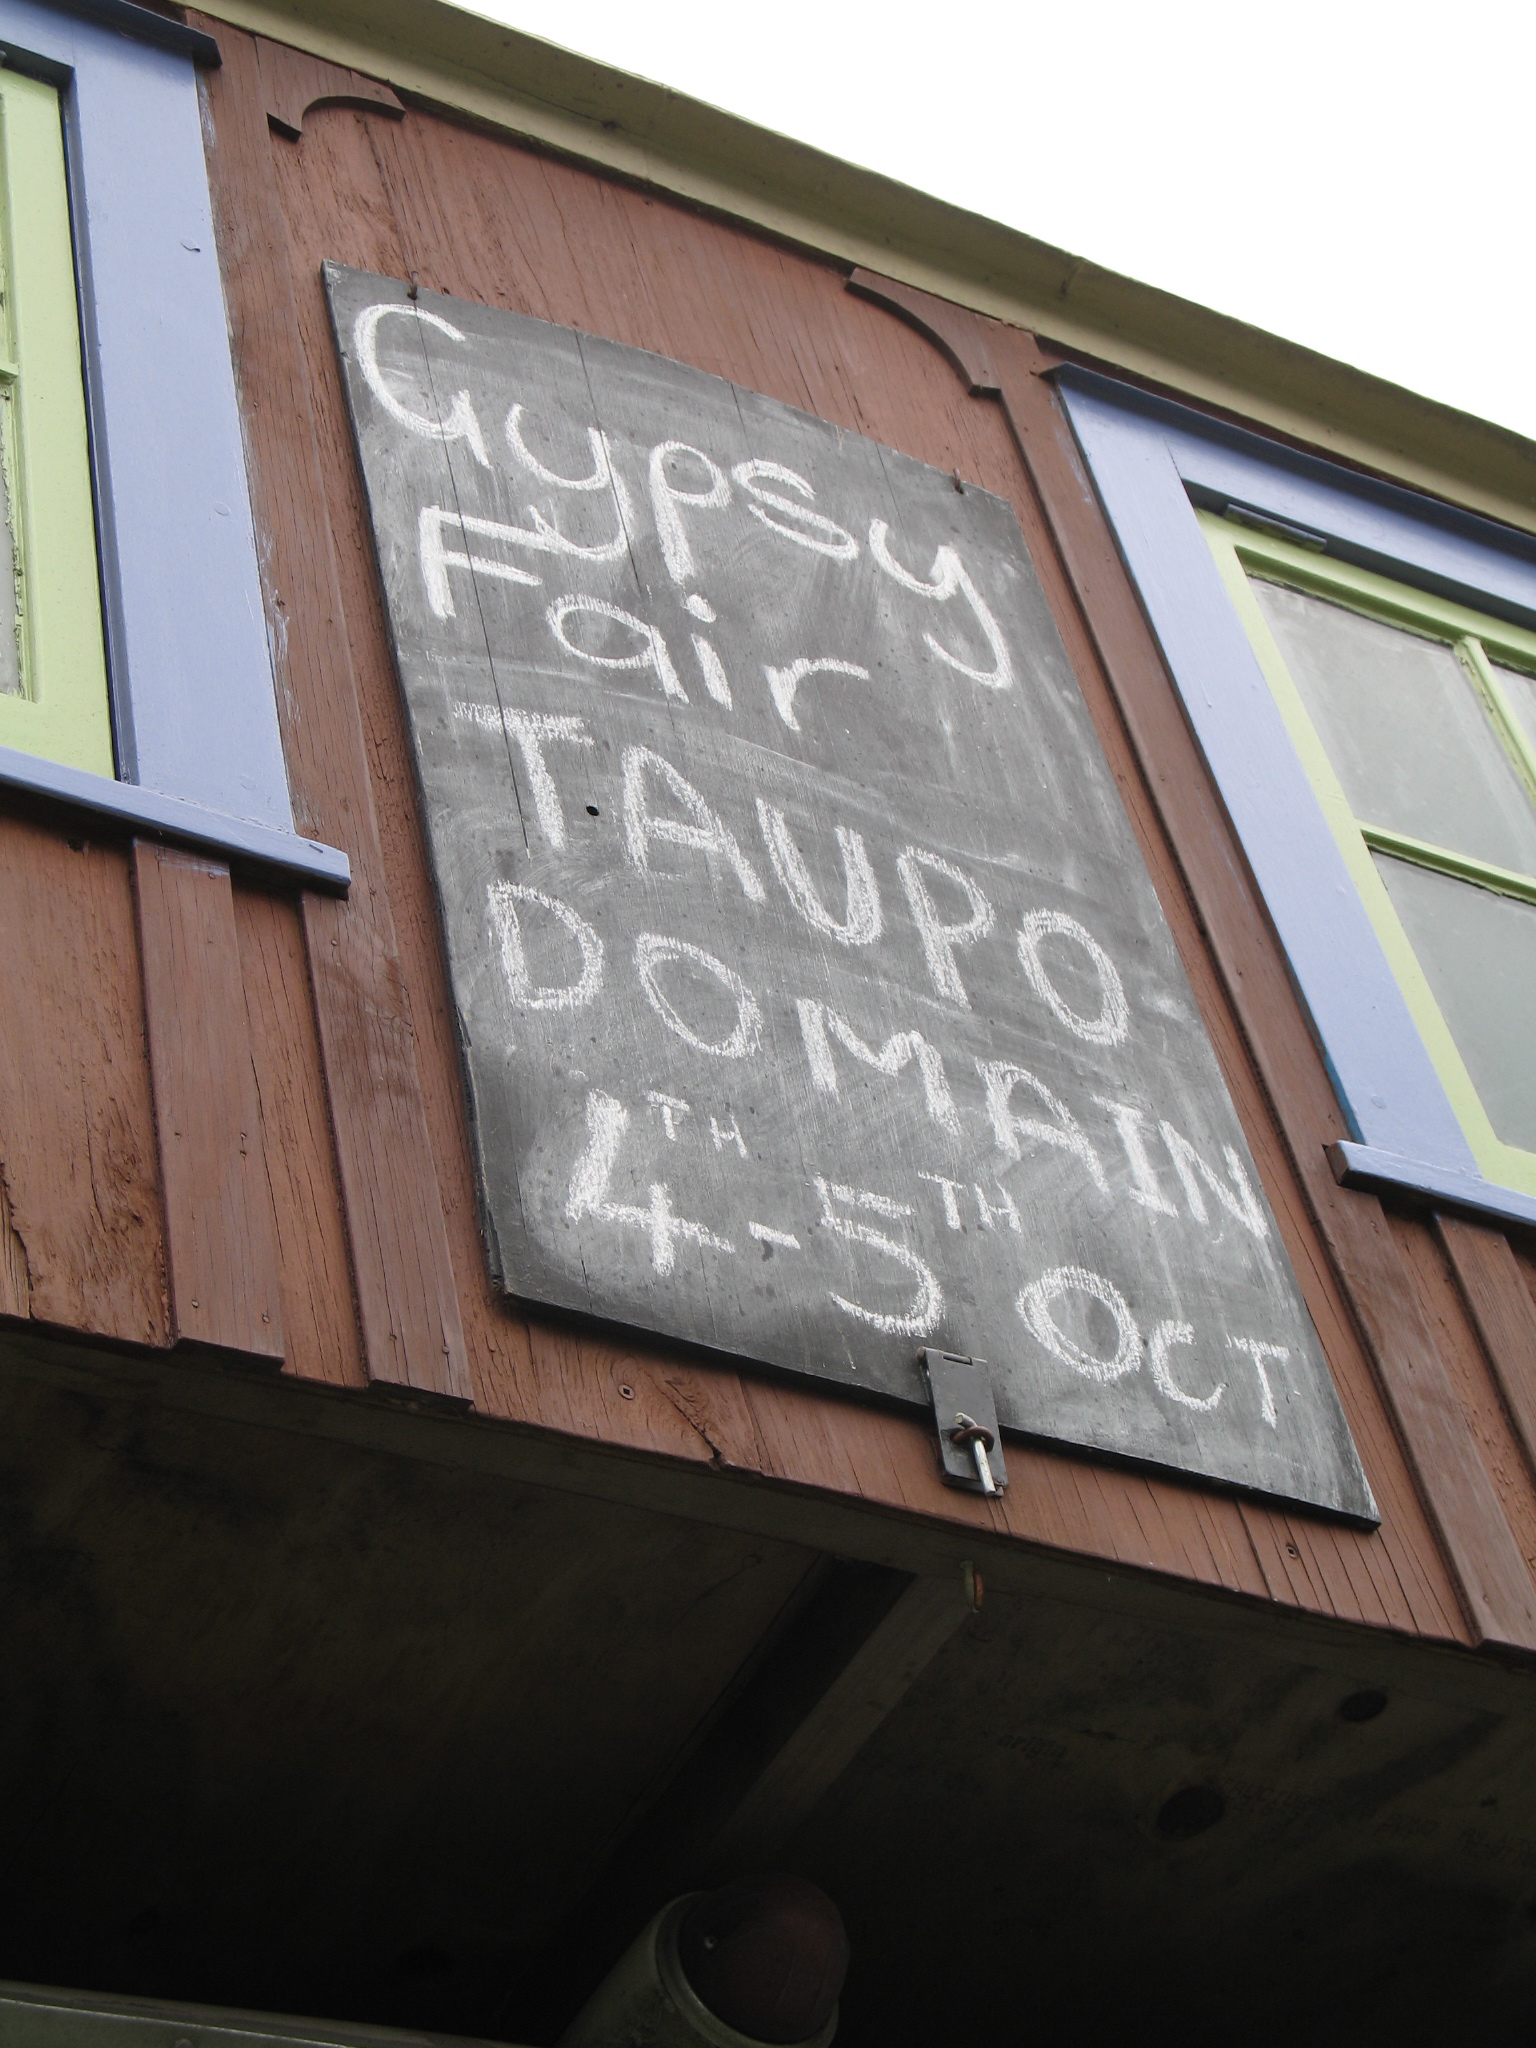 Gypsy
Fair
TAUPO
DOMAIN
4TH - 5TH OCT